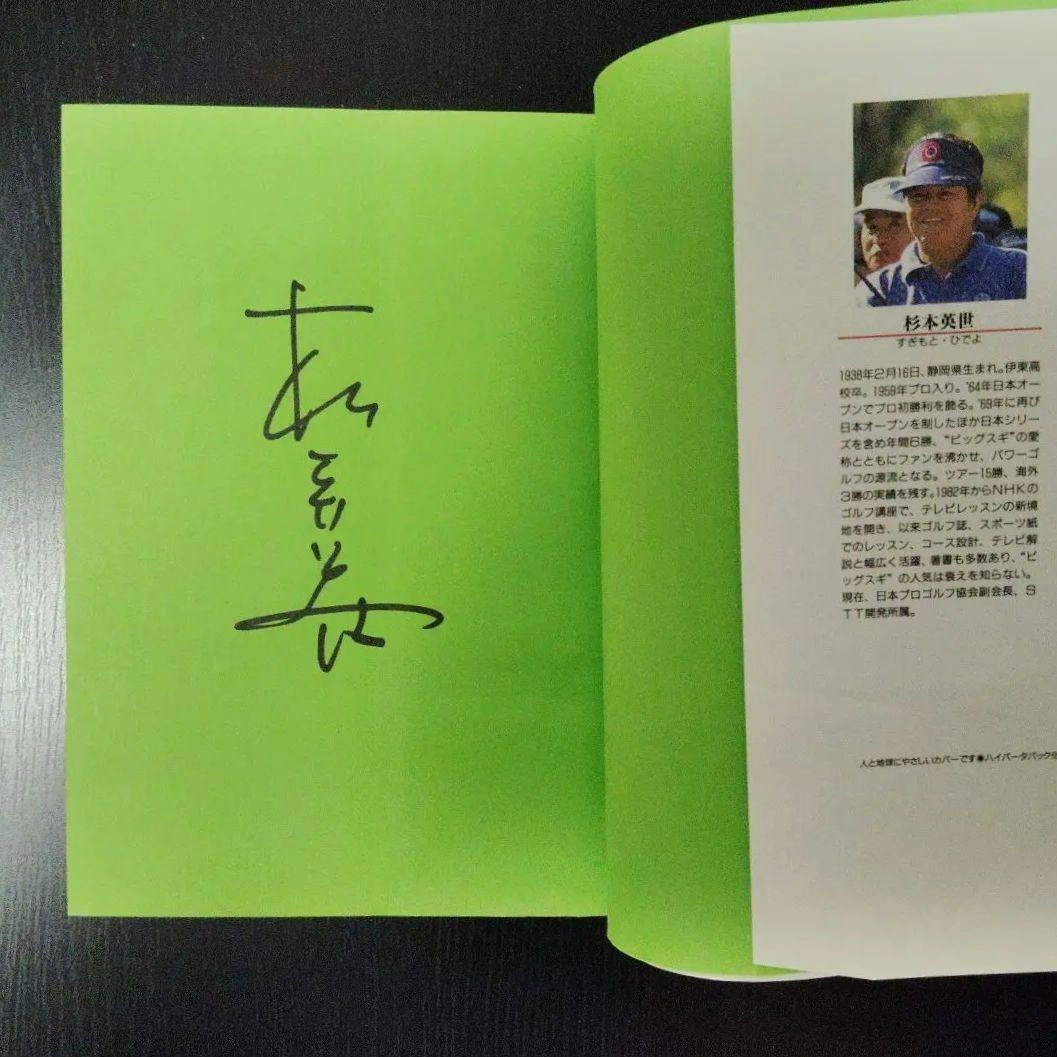 杉本英世
杉本英世
すぎもと・ひでよ
1938年2月16日、静岡県生まれ。伊東高
校卒。1959年プロ入り。'64年日本オー
プンでプロ初勝利を飾る。'69年に再び
日本オープンを制したほか日本シリー
ズを含め年間6勝、“ビッグスギ”の愛
称とともにファンを沸かせ、パワーゴ
ルフの源流となる。ツアー15勝、海外
3勝の実績を残す。1982年からNHKの
ゴルフ講座で、テレビレッスンの新境
地を開き、以来ゴルフ誌、スポーツ紙
でのレッスン、コース設計、テレビ解
説と幅広く活躍、著書も多数あり、“ビ
ッグスギ”の人気は衰えを知らない。
現在、日本プロゴルフ協会副会長、S
TT開発所属。
人と地球にやさしいカバーです●ハイパータパック